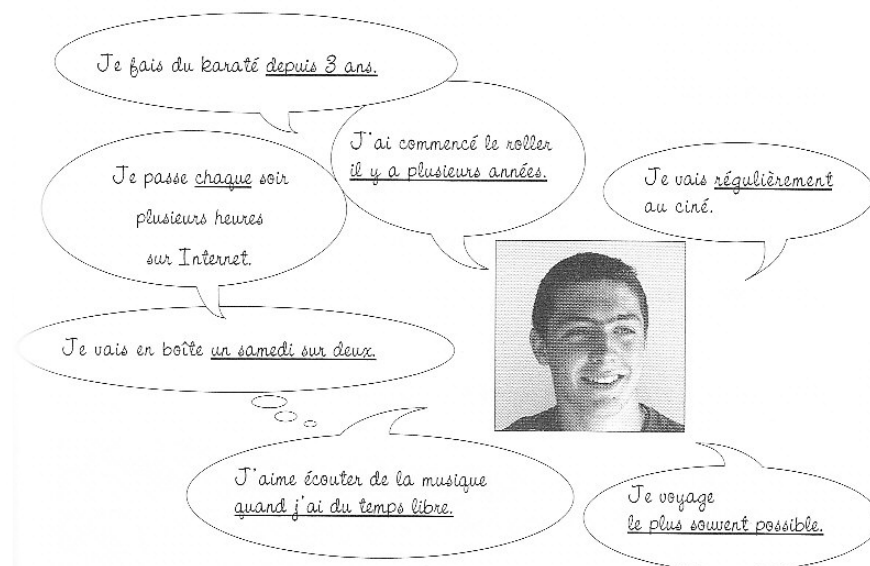 Je fais du karaté depuis 3 ans.
J'ai commencé le roller
il y a plusieurs années.
Je passe chaque soir
plusieurs heures
sur Internet.
Je vais régulièrement
au ciné.
Je vais en boîte un samedi sur deux.
J'aime écouter de la musique
quand j'ai du temps libre.
Je voyage
le plus souvent possible.